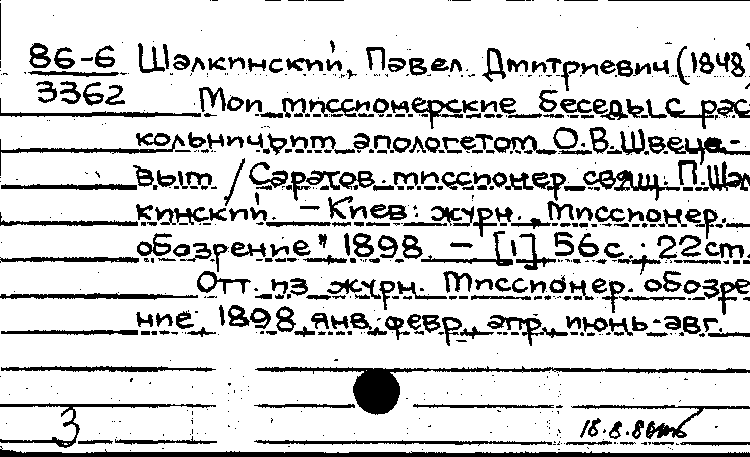 86-6 Шалкинский, Павел Дмитриевич (1848
3362 Мои миссионерские беседы с рас
кольничьим апологетом О.В.Швецо-
вым / Саратов. миссионер свящ. П.Шал
кинский. – Киев: журн. „Миссионер.
обозрение", 1898. – [1], 56 с.; 22 см.
Отт. из журн. Миссионер. обозре
ние, 1898, янв., февр., апр., июнь-авг.
3